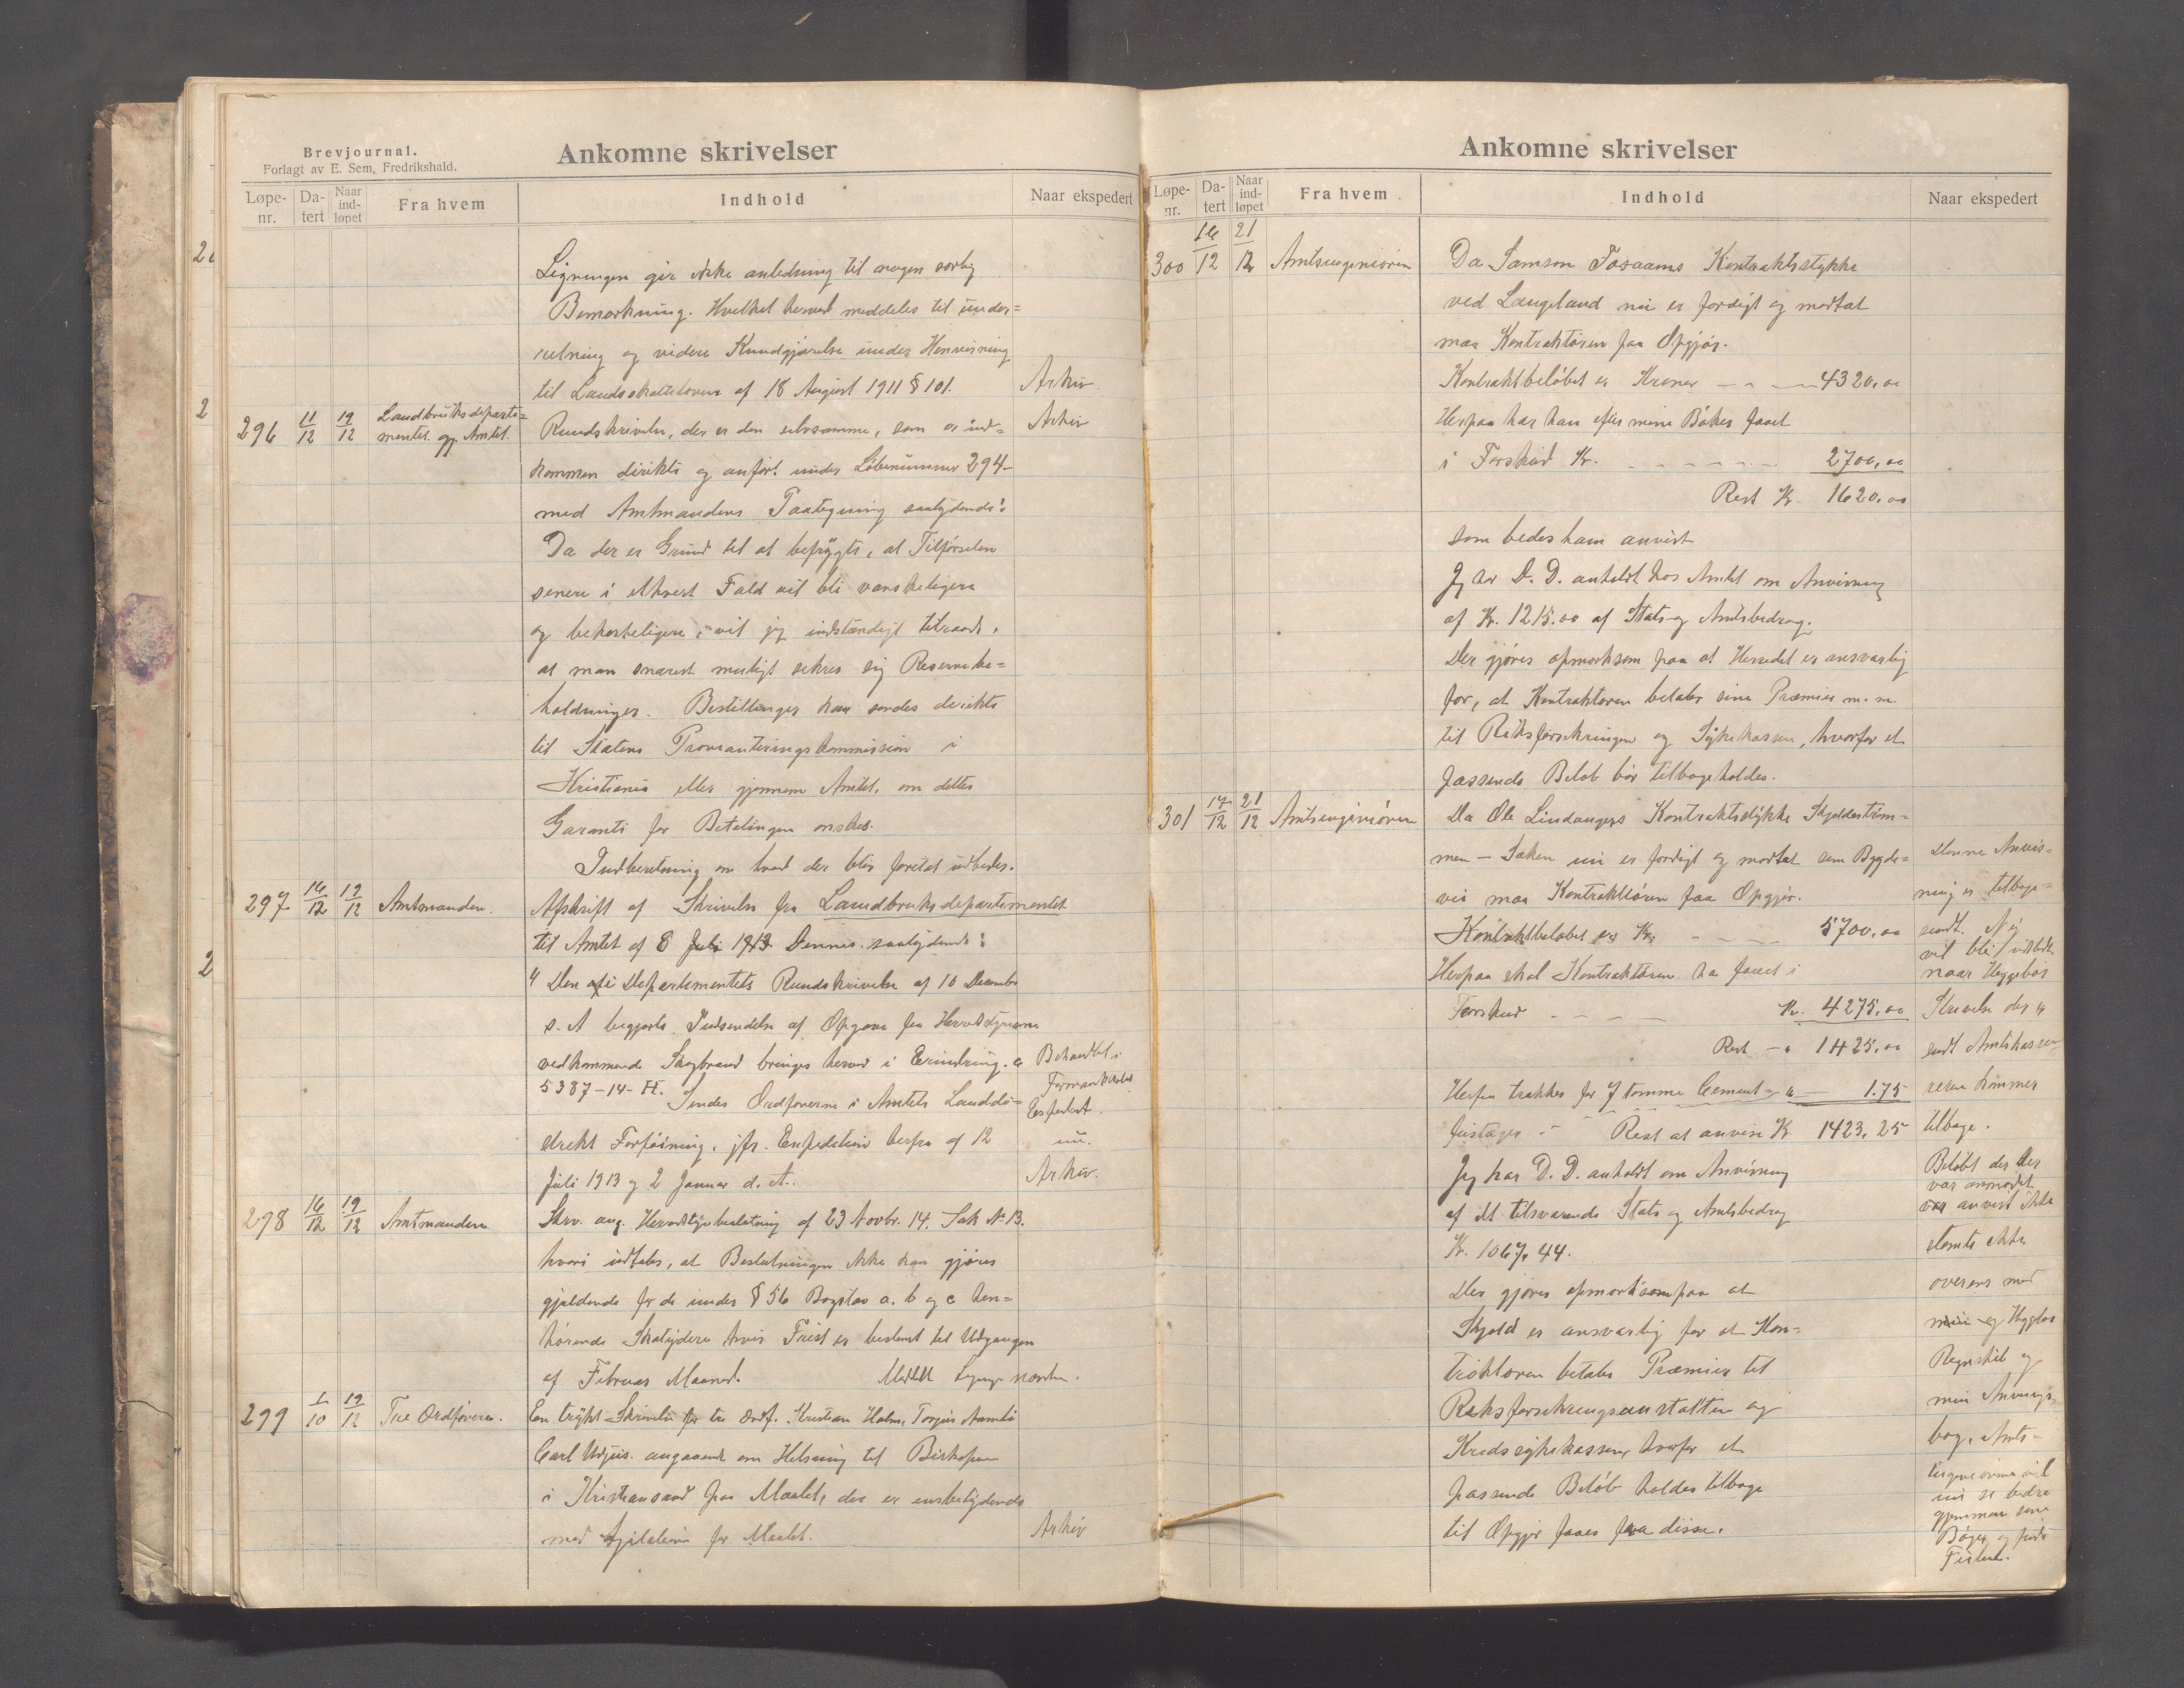 Brevjournal.
Forlagt av E. Sem, Fredrikshald.
Ankomne skrivelser
Løpe-nr. Da-tert Naar ind-løpet Fra hvem Indhold Naar ekspedert
Ligningen gir ikke anledning til nogen særlig
Bemærkning. Hvilket herved meddeles til under=
retning og videre Kundgjørelse under Henvisning
til Landsskatteloven af 18 August 1911 § 101. Arkiv.
296 11/12 19/12 Landbruksdeparte=
mentet gj. Amtet. Rundskrivelse, der er den selvsamme, som er ind= Arkiv
kommen direkte og anført under Løbenummer 294
med Amtmandens Paategning saalydende:
Da der er Grund til at befrygte, at Tilførselen
senere i ethvert Fald vil bli vanskeligere
og bekosteligere, vil jeg indstændigt tilraade,
at man snarest muligt sikrer sig Reservebe=
holdninger. Bestillinger kan sendes direkte
til Statens Provianteringskommission i
Kristiania eller gjennem Amtet, om dettes
Garanti for Betalingen ønskes.
Indberetning om hvad der blir foretat udbedes.
297 16/12 19/12 Amtmanden. Afskrift af Skrivelse fra Landbruksdepartementet
til Amtet af 8 Juli 1913 Dennes. saalydende:
" Den i Departementets Rundskrivelse af 10 December
s. A begjærte Indsendelse af Opgave fra Herredstyrerne
vedkommende Skogbrand bringes herved i Erindring. Behandlet i
5387-14-H. Sendes Ordførerne i Amtets Landdi= Formandskabet
strikt Forføining, jfr. Expedition herfra af 12 Exspedert.
Juli 1913 og 2 Januar d. A. Arkiv.
298 16/12 19/12 Amtmanden Skr. ang. Herredstyrebeslutning af 23 Novbr. 14. Sak No 13.
hvori udtales, at Beslutningen ikke kan gjøres
gjældende for de under § 56 Bogstav a. b og c hen=
hørende Skatydere hvis Frist er bestemt til Udgangen
af Februar Maaned.
299 1/10 19/12 Tre Ordførere. En trykt Skrivelse fra tre Ordf. Kristian Holm, Torjus
Carl angaaende en Helsning til Biskopen
i Kristiansand paa Maalet, der er ensbetydende
med Agitation for Maalet. Arkiv
Ankomne skrivelser
Løpe-nr. Da-tert Naar ind-løpet Fra hvem Indhold Naar ekspedert
300 16/12 21/12 Amtsingeniøren Da Samson Fosaams Kontraktsstykke
ved Langeland nu er færdigt og mottat
maa Kontraktøren faa Opgjør.
Kontraktbeløbet er Kroner - - - 4320,00
Herpaa har han efter mine Bøker faaet
i Forskud Kr. - - - - - - 2700,00
Rest Kr. 1620,00
som bedes ham anvist
Jeg har D. D. anholdt hos Amtet om Anvisning
af Kr. 1215.00 af Stats- og Amtsbedrag.
Der gjøres opmerksom paa at Herredet er ansvarlig
for, at Kontraktøren betaler sine Præmier m. m.
til Riksforsikringen og Sykekassen, hvorfor et
passende Beløb bør tilbageholdes.
301 17/12 21/12 Amtsingeniøren Da Ole Lindangers Kontraktsstykke Skjoldestrøm=
men - Saken nu er færdigt og mottat som Bygde= Denne Anvis=
vei maa Kontraktøren faa Opgjør. ning er tilbage=
Kontraktbeløbet er Kr. - - - 5700,00 sendt. Ny
vil bli utstedt
Herpaa skal Kontraktøren ha faaet i naar Heggebøs
Forskud - - - - Kr. 4275,00 Skrivelse der er
Rest - " 1425,00 sendt Amtskasse
Herfra trækkes for 7 tomme Cement- " 1.75 reren kommer
fustager - Rest at anvise Kr. 1423,25 tilbage.
Jeg har D. D. anholdt om Anvisning Beløbet der her
var anmodet
af det tilsvarende Stats og Amtsbedrag var anvist ikke
Kr. 1067,44. stemte ikke
Der gjøres opmerksom paa at overens med
Skjold er ansvarlig for at Kon= min og Heggebøs
traktøren betaler Præmier til Regnskab og
Riksforsikringsanstalten og min Anvisnings
Kredssykekassen, hvorfor et bog. Amts=
passende Beløb holdes tilbage ingeniøren vil
nu se bedre
til Opgjør faaes fra disse. gjennem sine
Bøger og finde
Feilen.